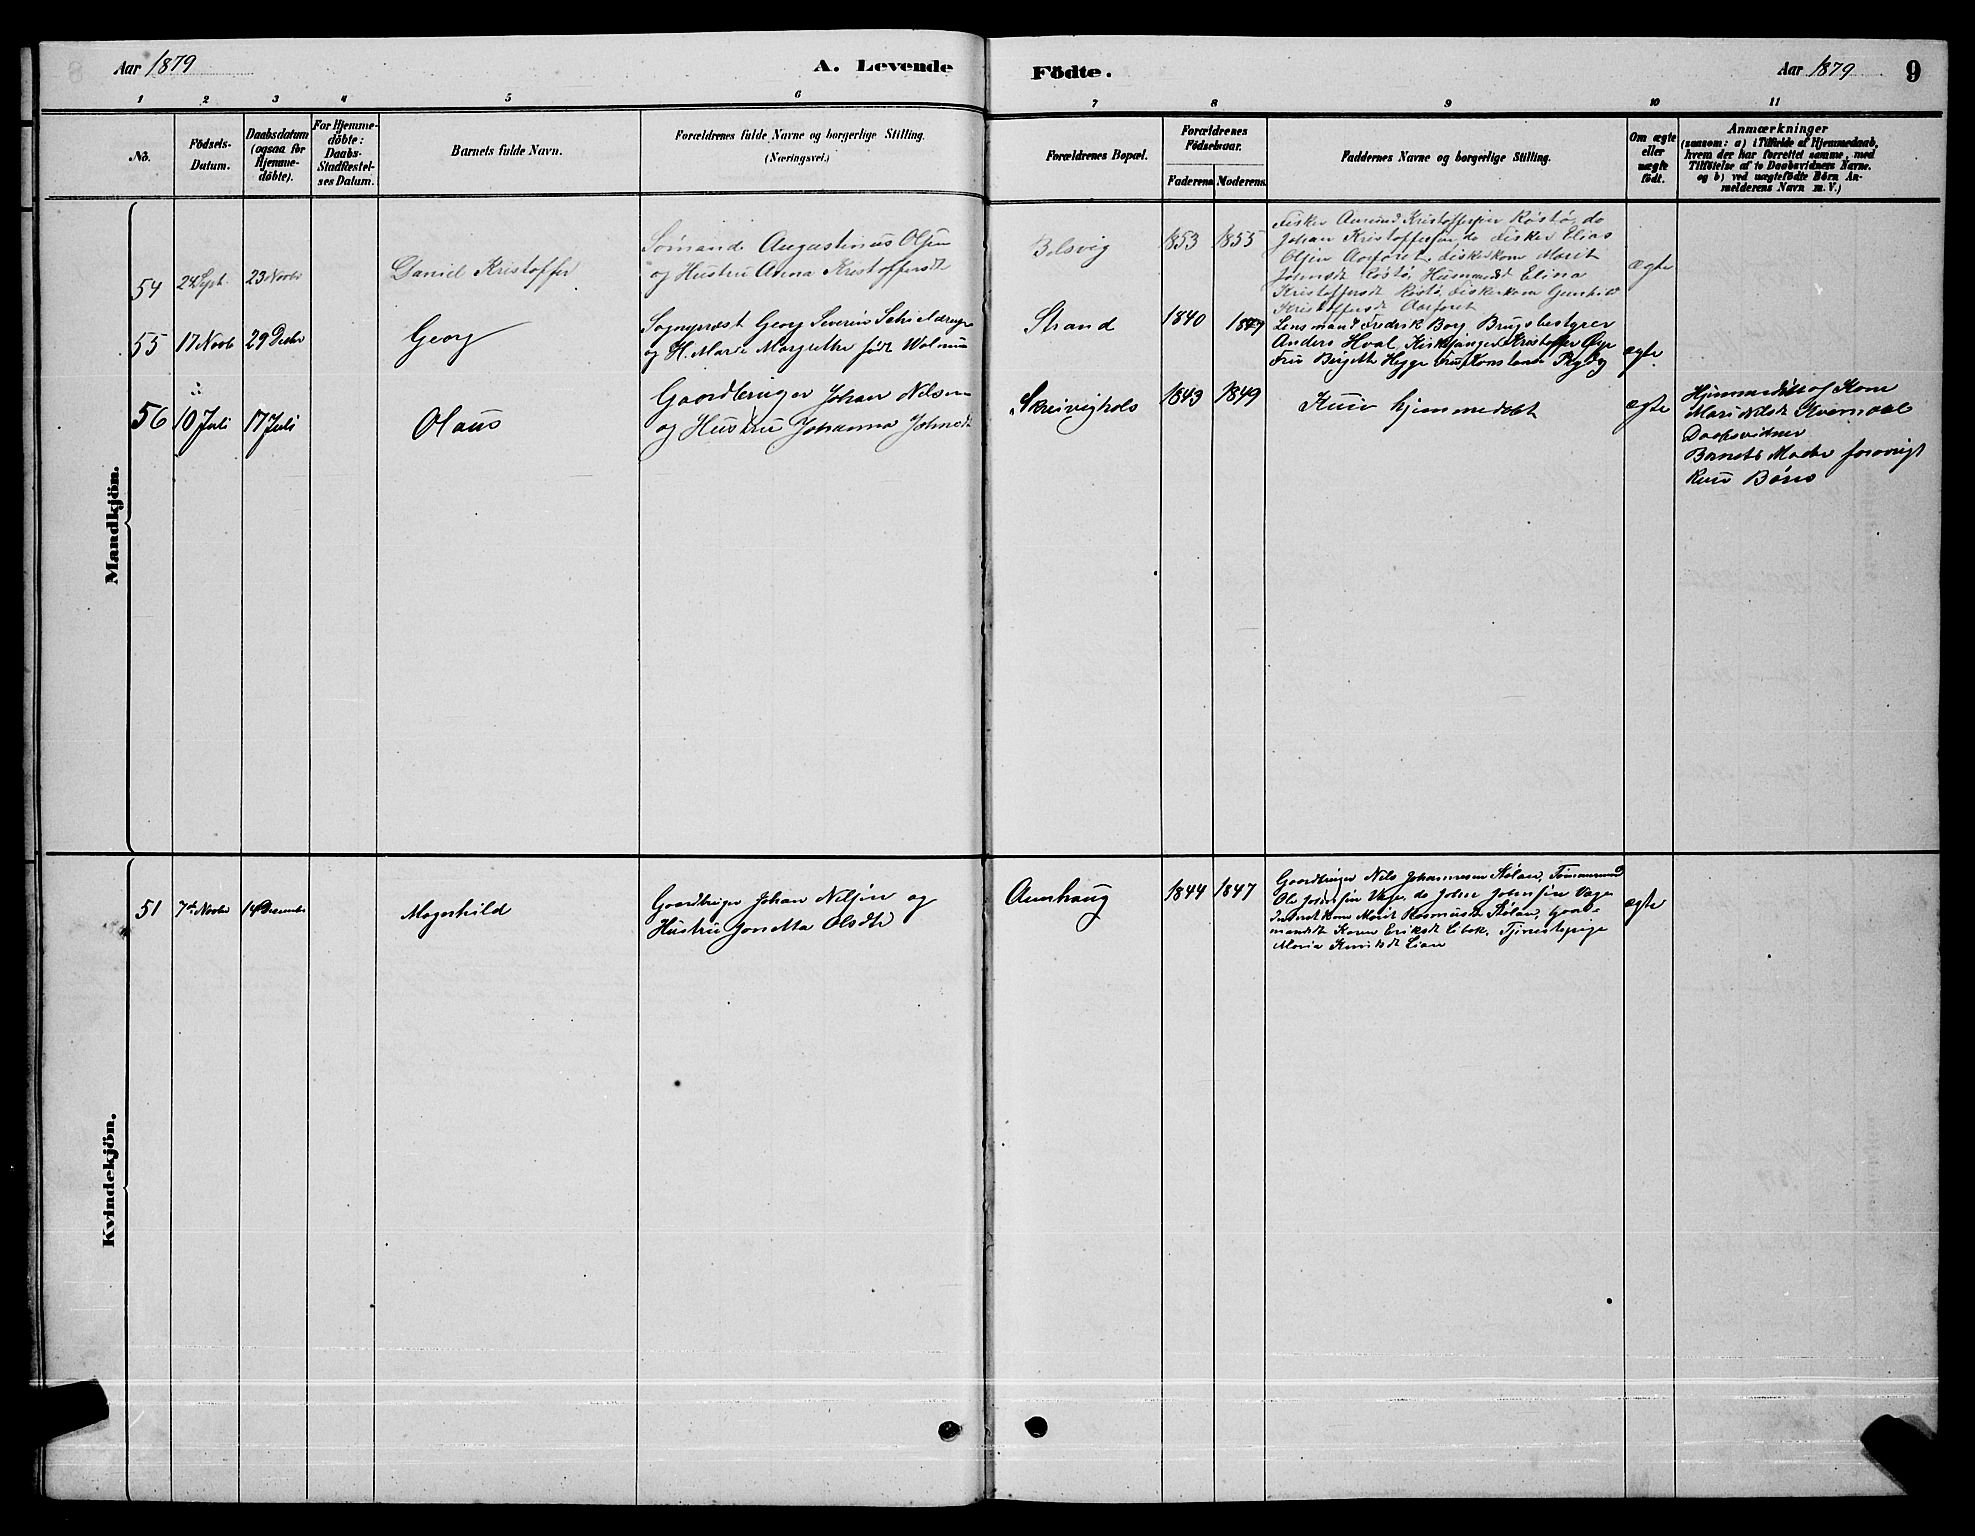 Aar 1879
A. Levende
Födte.
Aar 1879
9
1 2 3 4 5 6 7 8 9 10 11
No.
Födsels-
Datum.
Daabsdatum
(ogsaa for
Hjemme-
döbte).
For Hjemme-
döbte:
Daabs-
Stadfæstel-
ses Datum.
Barnets fulde Navn.
Forældrenes fulde Navne og borgerlige Stilling.
(Næringsvei.)
Forældrenes Bopæl.
Forældrenes
Födselsaar.
Faderens Moderens.
Faddernes Navne og borgerlige Stilling.
Om ægte
eller
uægte
født.
Anmærkninger
(saasom: a) i Tilfælde af Hjemmedaab,
hvem der har forrettet samme, med
Tilföielse af to Daabsvidners Navne.
og b) ved uægtefödte Börn An-
melderens Navn m. V.)
Mandkjön.
54
24 Sept.
23 Novbr
Daniel Kristoffer
Sømand Augustinus Olsen
og Hustru Anna Kristoffersdt
Bolsvig
1853
1855
Fisker Amund Kristoffersen Røstø, do
Johan Kristoffersen, do Fisker Elias
Olsen Aarforet, Fiskerkone Marit
Johnsdt Røstø, Elina
Kristoffersdt Røstø, Fiskerkone
Kristoffersdt Aarforet
ægte
55
17 Novb
29 Decbr
Georg
Sognepræst Georg Severin
og H. Marie Margrethe født
Strand
1840
1849
Lensmand Fredrik Borg, Brugsbestyrer
Anders Hval, Kirkesanger Kristoffer
Fru Birgitte Hegge, Fru Konstance
ægte.
56
10 Juli
17 Juli
Olaus
Gaardbruger Johan Nilsen
og Hustru Johanna Johnsdt
1843
1849
Kun hjemmedøbt
ægte
Hjemmedøbt af Kone
Mari Nilsdt Kverndal
Daabsvidner
Barnets Moder forøvrigt
kun Børn
Kvindekjön.
51
7de Novbr
14 December
Magnhild
Gaardbruger Johan Nilsen og
Hustru Jonetta Olsdt
Aurshaug
1844
1847
Gaardbruger Nils Johannesen Stølan, Tømmermand
Ole Johnsen Vage, do Johan Johnsen Vage
Marit Rasmusdt Stølan, Gaard-
mandsdt Karen Eriksdt Libok, Tjenestepige
Maria Knutsdt Lian
ægte